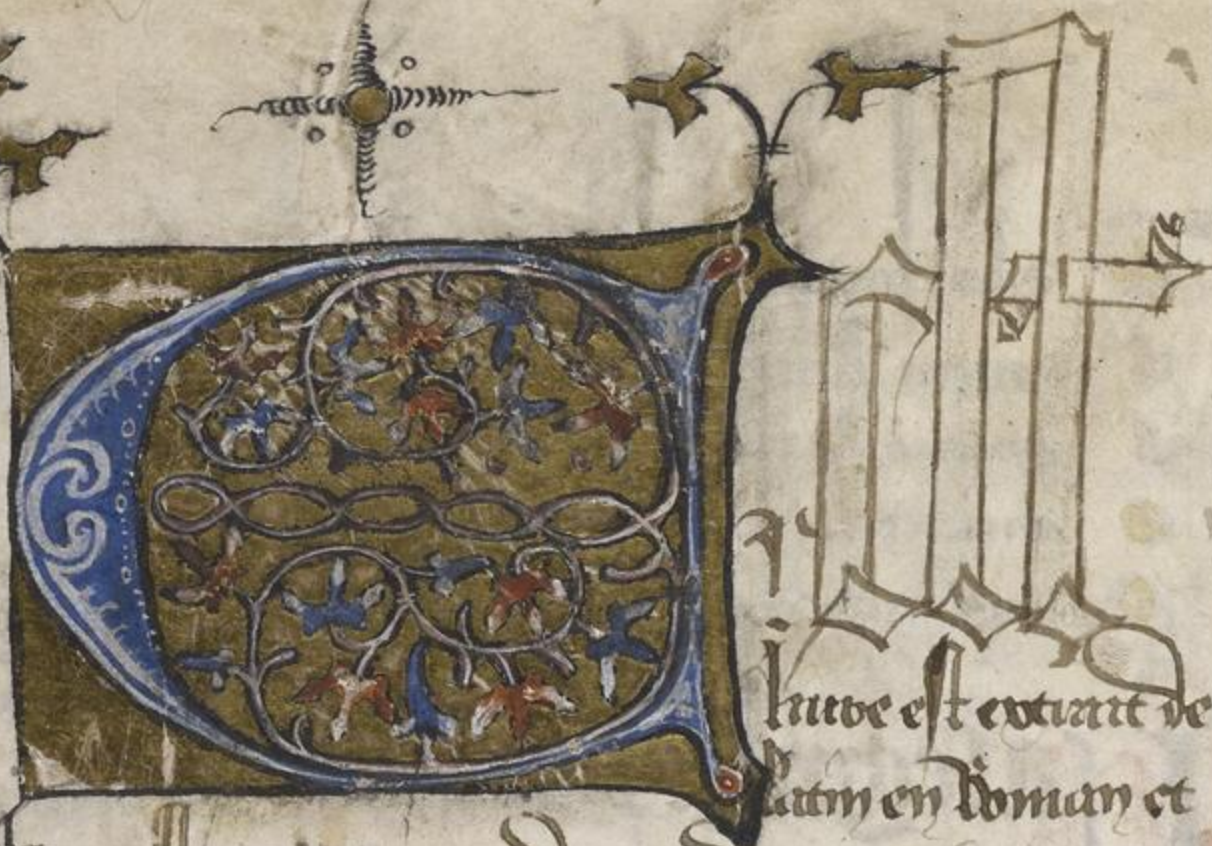 Cist
liure est extrait de
latin en Roman et